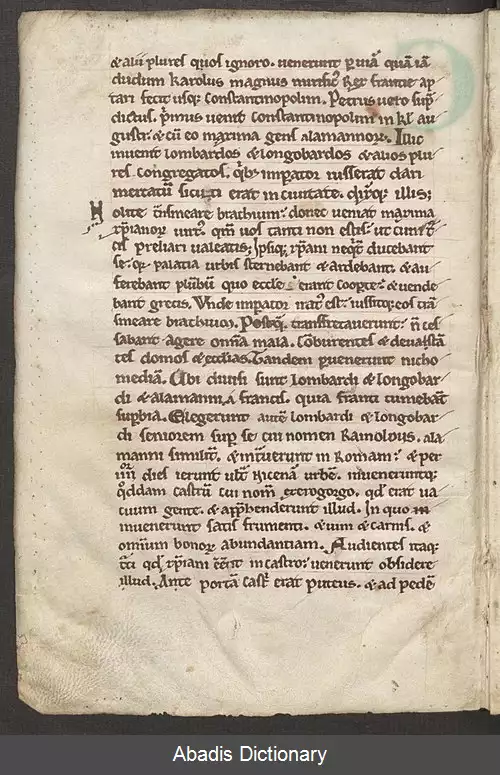 & alii plures quos ignoro. uenerunt p uiā quā iā
dudum karolus magnus mirific' Rex francie ap
tari fecit usq; constantinopolim. Petrus uero sup̄
dictus. p̄mus uenit constantinopolim in kł au
gusti. & cū eo maxima gens alamannoꝝ. Illic
inuenit lombardos & longobardos & alios plu
res congregatos. qib; imp̄ator iusserat dari
mercatū sicuti erat in ciuitate. dixitq; illis;
Nolite t̄nsmeare brachium. donec ueniat maxima
xp̄ianoꝝ uirt'. qm̄ uos tanti non estis. ut cum t̄
cis preliari ualeatis; Ipsiq; xp̄iani neqt̄ ducebant
se. qꝛ palatia urbis sternebant & ardebant. & au
ferebant plūbū quo eccłe erant cooꝑte. & uende
bant grecis. Vnde imp̄ator irat' est. iussitq; eos t̄ns
meare brachium. Postq̄ transfretauerunt. ñ ces
sabant agere om̄ia mala. cōburentes & deuastā
tes domos & ecclias. Tandem p̱uenerunt nicho
mediā. Vbi diuisi sunt lombardi & longobar
di & alamanni, a francis. quia franci tumebant
supbia. Elegerunt autē lombardi & longobar
di seniorem sup se cui nomen Rainoldus. ala
manni similit̄. & int̄uerunt in Romaniā. & per
iiiior dies ierunt ult̄ Nicenā urbē. inueneruntq;
qddam castrū cui nom̄ exerogorgo. qd̄ erat ua
cuum gente. & app̄henderunt illud. In quo
inuenerunt satis frumenti. & uini & carnis. &
omnium bonoꝝ abundantiam. Audientes itaq;
t̄ci qd̄ xp̄iani eēnt in castro. uenerunt obsidere
illud. Ante portā cast' erat puteus. & ad pedē
Abadis Dictionary